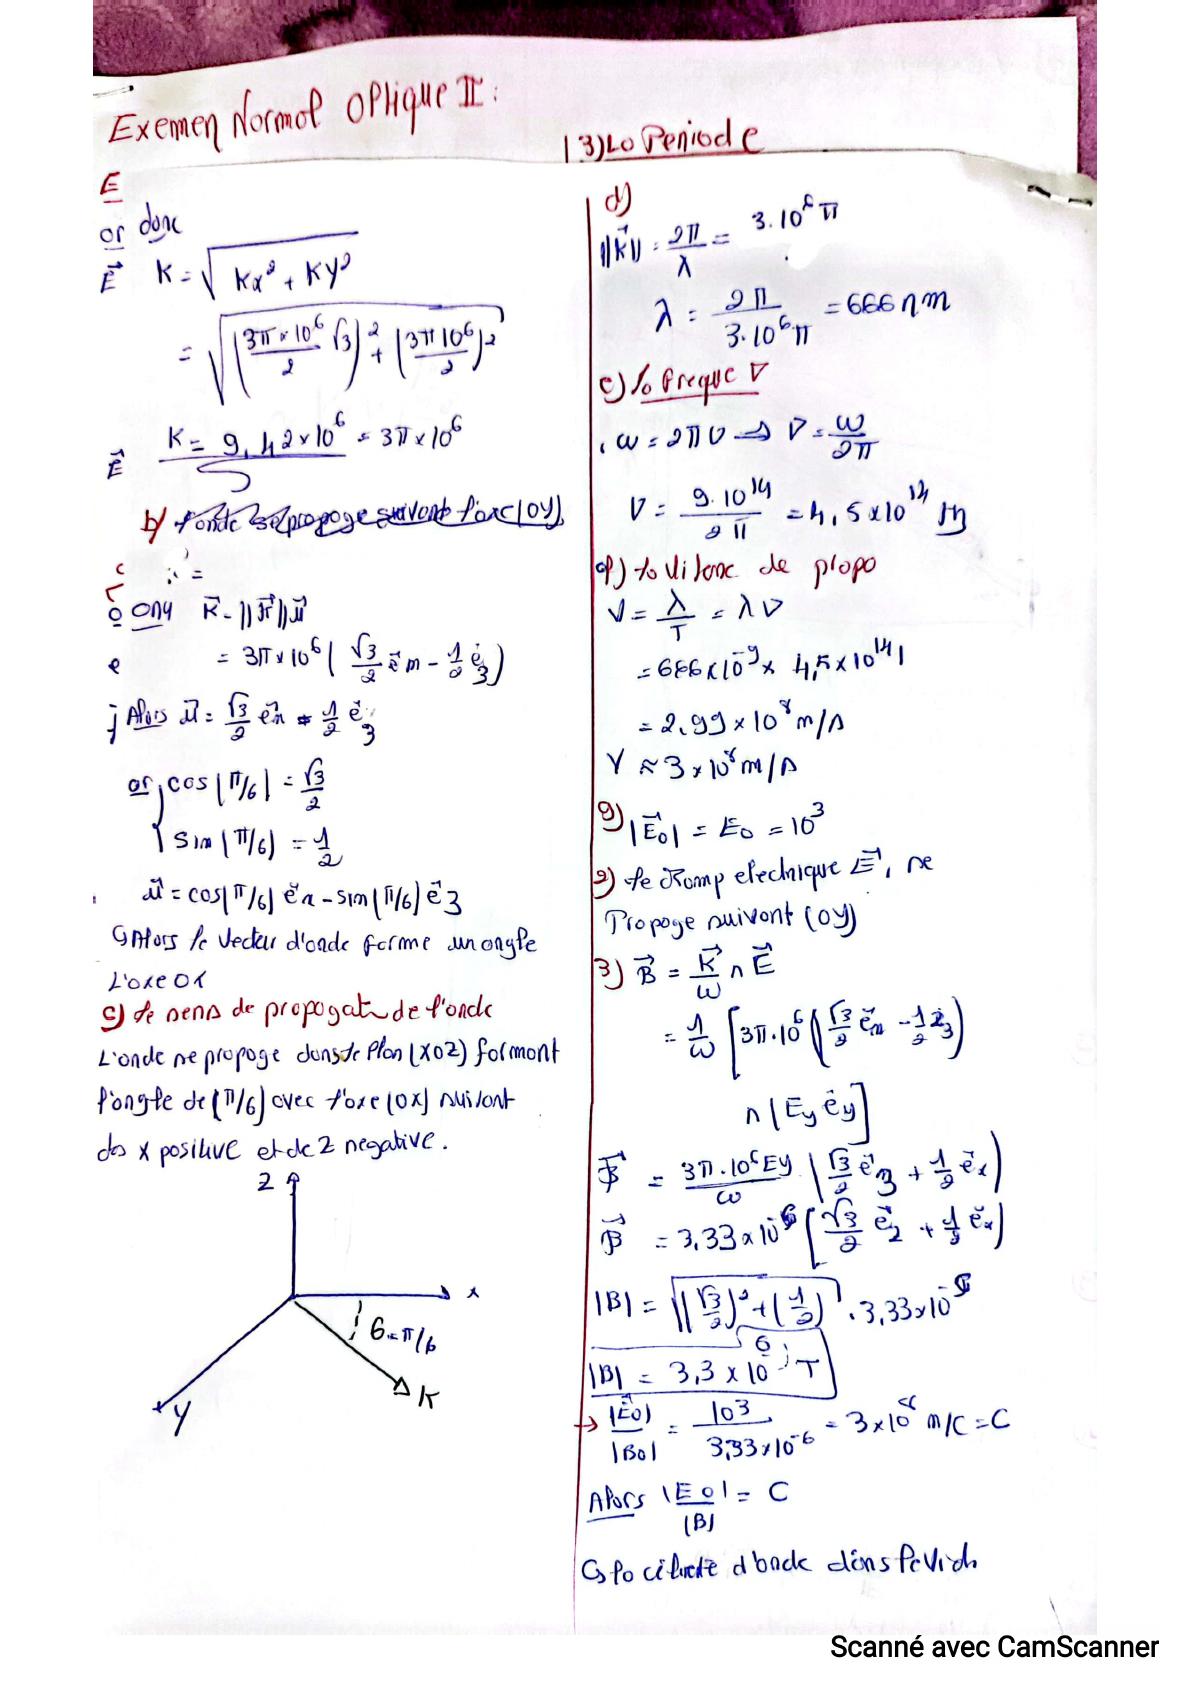 Exemen Normal Optique II:
E
or donc
E⃗ K = √(Kx² + Ky²)
= √((3π×10⁶/2 √3)² + (3π10⁶/2)²)
E⃗ K = 9,42×10⁶ = 3π×10⁶
b) l'onde se propage suivant l'axe (OY)
∴ =
ona K⃗ = ||K⃗||u⃗
= 3π×10⁶(√3/2 e⃗x - 1/2 e⃗z)
Alors u⃗ = √3/2 e⃗x - 1/2 e⃗z
or, cos(π/6) = √3/2
sin(π/6) = 1/2
u⃗ = cos(π/6) e⃗x - sin(π/6) e⃗z
Alors le vecteur d'onde forme un angle
L'axe OX
c) Le sens de propogat de l'onde
L'onde se propage dans le Plan (XOZ) formant
l'angle de (π/6) avec l'axe (OX) suivant
des x positive et de Z negative.
Z
x
6=π/6
K
y
3) La Periode
d)
||K⃗|| = 2π/λ = 3.10⁶π
λ = 2π/3.10⁶π = 666 nm
e) la freque ν
ω = 2πν → ν = ω/2π
ν = 9.10¹⁴/2π = 4,5×10¹⁴
f) la vitesse de propa
V = λ/T = λν
= 666×10⁻⁹ × 4,5×10¹⁴
= 2,99×10⁸ m/s
V ≈ 3×10⁸ m/s
g) |E⃗0| = E0 = 10³
2) Le champ electrique E⃗, se
Propage suivant (OY)
3) B⃗ = K⃗/ω ∧ E⃗
= 1/ω [3π.10⁶(√3/2 e⃗x - 1/2 e⃗z)
∧ (Ey e⃗y]
B⃗ = 3π.10⁶Ey/ω (√3/2 e⃗z + 1/2 e⃗x)
B⃗ = 3,33×10⁻⁶ [√3/2 e⃗z + 1/2 e⃗x)
|B| = √((√3/2)² + (1/2)) . 3,33×10
|B| = 3,3×10⁻⁶ T
→ |E⃗0|/|B0| = 10³/3,33×10⁻⁶ = 3×10⁸ m/s = C
Alors |E0|/|B| = C
la célerité d'onde dans le vide
Scanné avec CamScanner